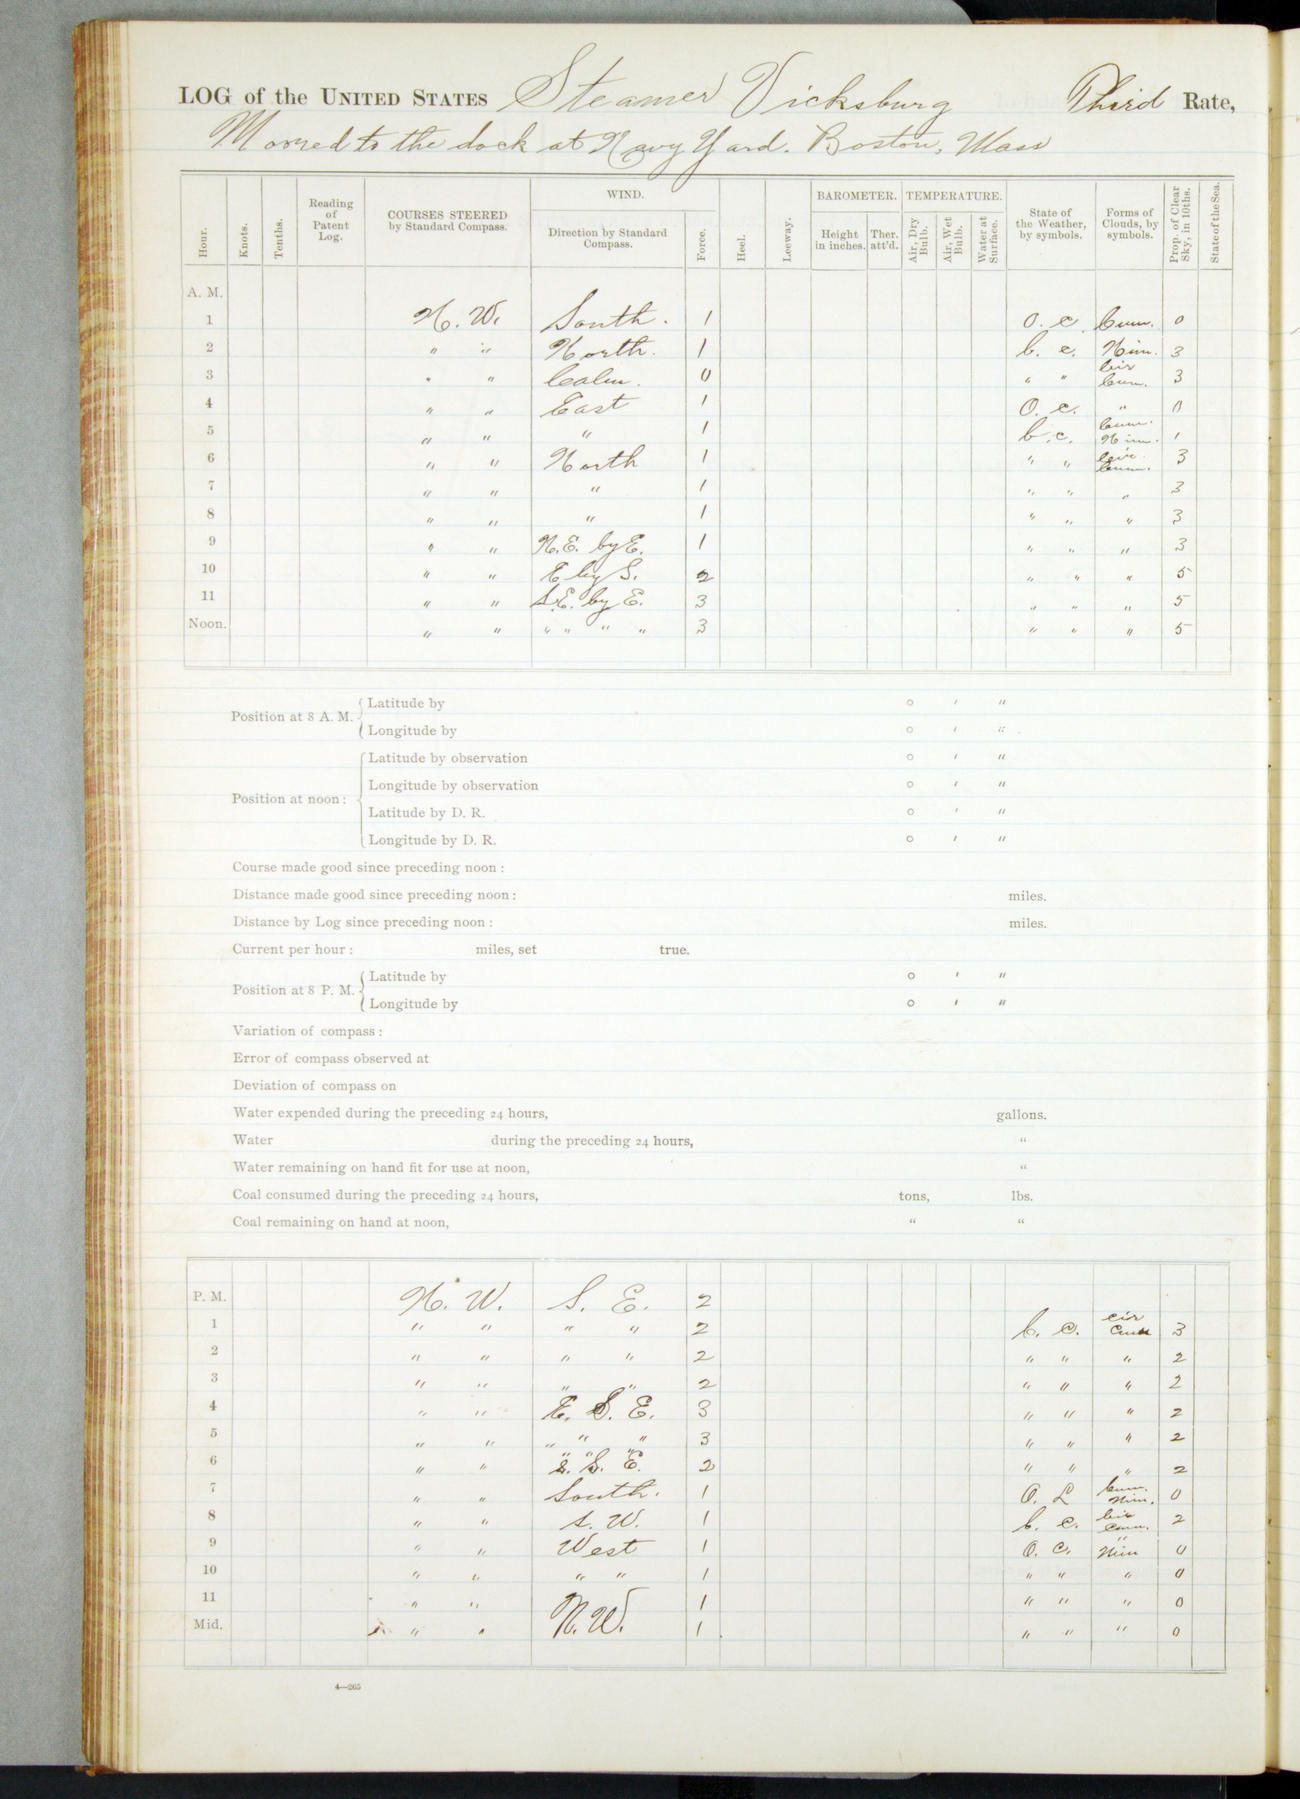 LOG of the UNITED STATES Steamer Vicksburg Third Rate,
Moored to the dock at Navy Yard. Boston, Mass
Hour. Knots. Tenths. Reading of Patent Log. COURSES STEERED by Standard Compass. WIND. Direction by Standard Compass. Force. Heel. Leeway. BAROMETER. Height in inches. Ther. att'd. TEMPERATURE. Air, Dry Bulb. Air, Wet Bulb. Water at Surface. State of the Weather, by symbols. Forms of Clouds, by symbols. Prop. of Clear Sky, in 10ths. State of the Sea.
A. M.
1 N. W. South. 1 O. c. Cum. 0
2 " " North. 1 b. c. Nim. 3
3 " " Calm. 0 " " Cir Cum. 3
4 " " East 1 O. c. " 0
5 " " " 1 b. c. Cum. Nim. 1
6 " " North 1 " " Cir. Cum. 3
7 " " " 1 " " " 3
8 " " " 1 " " " 3
9 " " N.E. by E. 1 " " " 3
10 " " E by S. 2 " " " 5
11 " " S.E. by E. 3 " " " 5
Noon. " " " " " " 3 " " " 5
Position at 8 A. M. Latitude by ° ' "
Longitude by ° ' "
Position at noon: Latitude by observation ° ' "
Longitude by observation ° ' "
Latitude by D. R. ° ' "
Longitude by D. R. ° ' "
Course made good since preceding noon:
Distance made good since preceding noon: miles.
Distance by Log since preceding noon: miles.
Current per hour: miles, set true.
Position at 8 P. M. Latitude by ° ' "
Longitude by ° ' "
Variation of compass:
Error of compass observed at
Deviation of compass on
Water expended during the preceding 24 hours, gallons.
Water during the preceding 24 hours, "
Water remaining on hand fit for use at noon, "
Coal consumed during the preceding 24 hours, tons, lbs.
Coal remaining on hand at noon, " "
P. M. N. W. S. E. 2
1 " " " " 2 b. c. cir Cum 3
2 " " " " 2 " " " 2
3 " " " " 2 " " " 2
4 " " E. S. E. 3 " " " 2
5 " " " " " 3 " " " 2
6 " " S. S. E. 2 " " " 2
7 " " South. 1 O. Cum. Nim. 0
8 " " S. W. 1 b. c. Cir Cum. 2
9 " " West 1 O. c. " Nim 0
10 " " " " 1 " " " 0
11 " " 1 " " " 0
Mid. " " N.W. 1 " " " 0
4—265